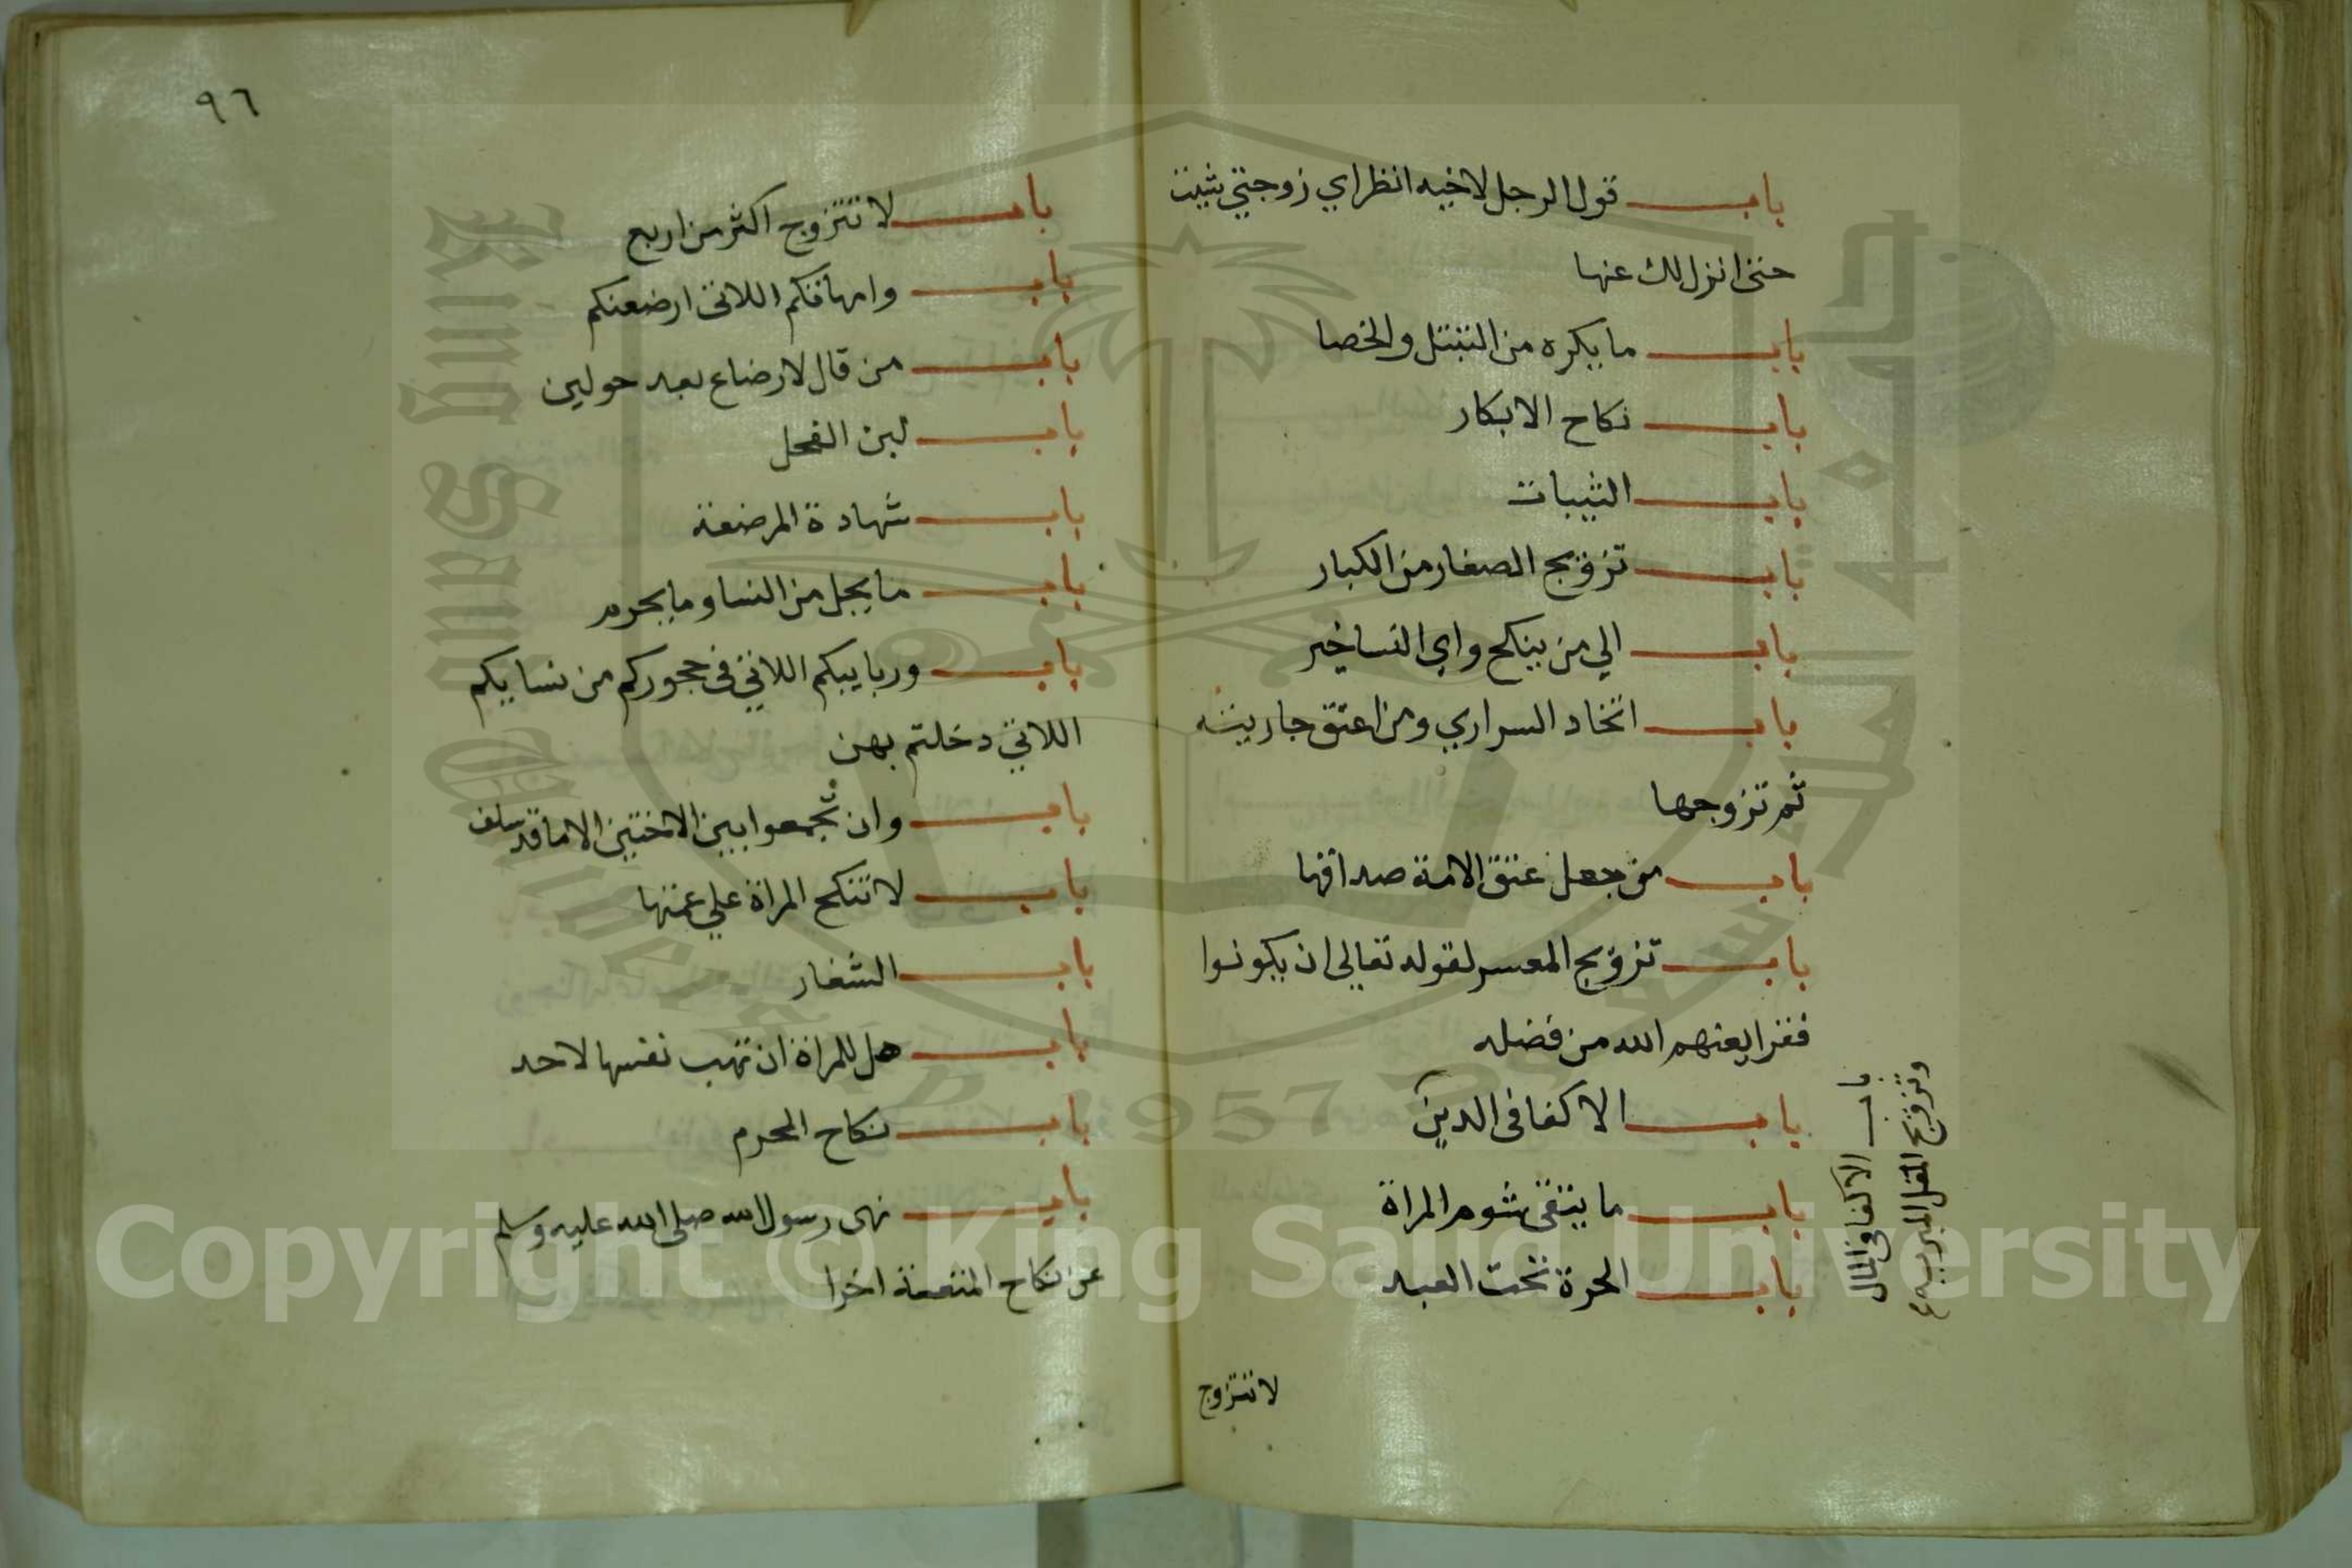 باب قول الرجل لاخيه انظر اي زوجتي شيت
حتى انزل لك عنها
باب ما يكره من التبتل والخصا
باب نكاح الابكار
باب الثيبات
باب تزويج الصغار من الكبار
باب الي من ينكح واي النسا خير
باب اتخاد السراري ومن اعتق جاريته
ثم تزوجها
باب من جعل عتق الامة صداقها
باب تزويج المعسر لقوله تعالي ان يكونوا
فقرا يغنهم الله من فضله
باب الاكفا فى الدين
باب الاكفا فى المال
وتزويج المقل المثرية
باب ما يتقى شوم المراة
باب الحرة تحت العبد
لا تتزوج
٩٦
باب لا تتزوج اكثر من اربع
باب وامهاتكم اللاتى ارضعنكم
باب من قال لا رضاع بعد حولين
باب لبن الفحل
باب شهادة المرضعة
باب ما يحل من النسا وما يحرم
باب وربايبكم اللاتي فى حجوركم من نسايكم
اللاتي دخلتم بهن
باب وان تجمعوا بين الاختين الا ما قد سلف
باب لا تنكح المراة علي عمتها
باب الشغار
باب هل للمراة ان تهب نفسها لاحد
باب نكاح المحرم
باب نهى رسول الله صلى الله عليه وسلم
عن نكاح المتعة اخرا
Copyright © King Saud University
King Saud University
1957